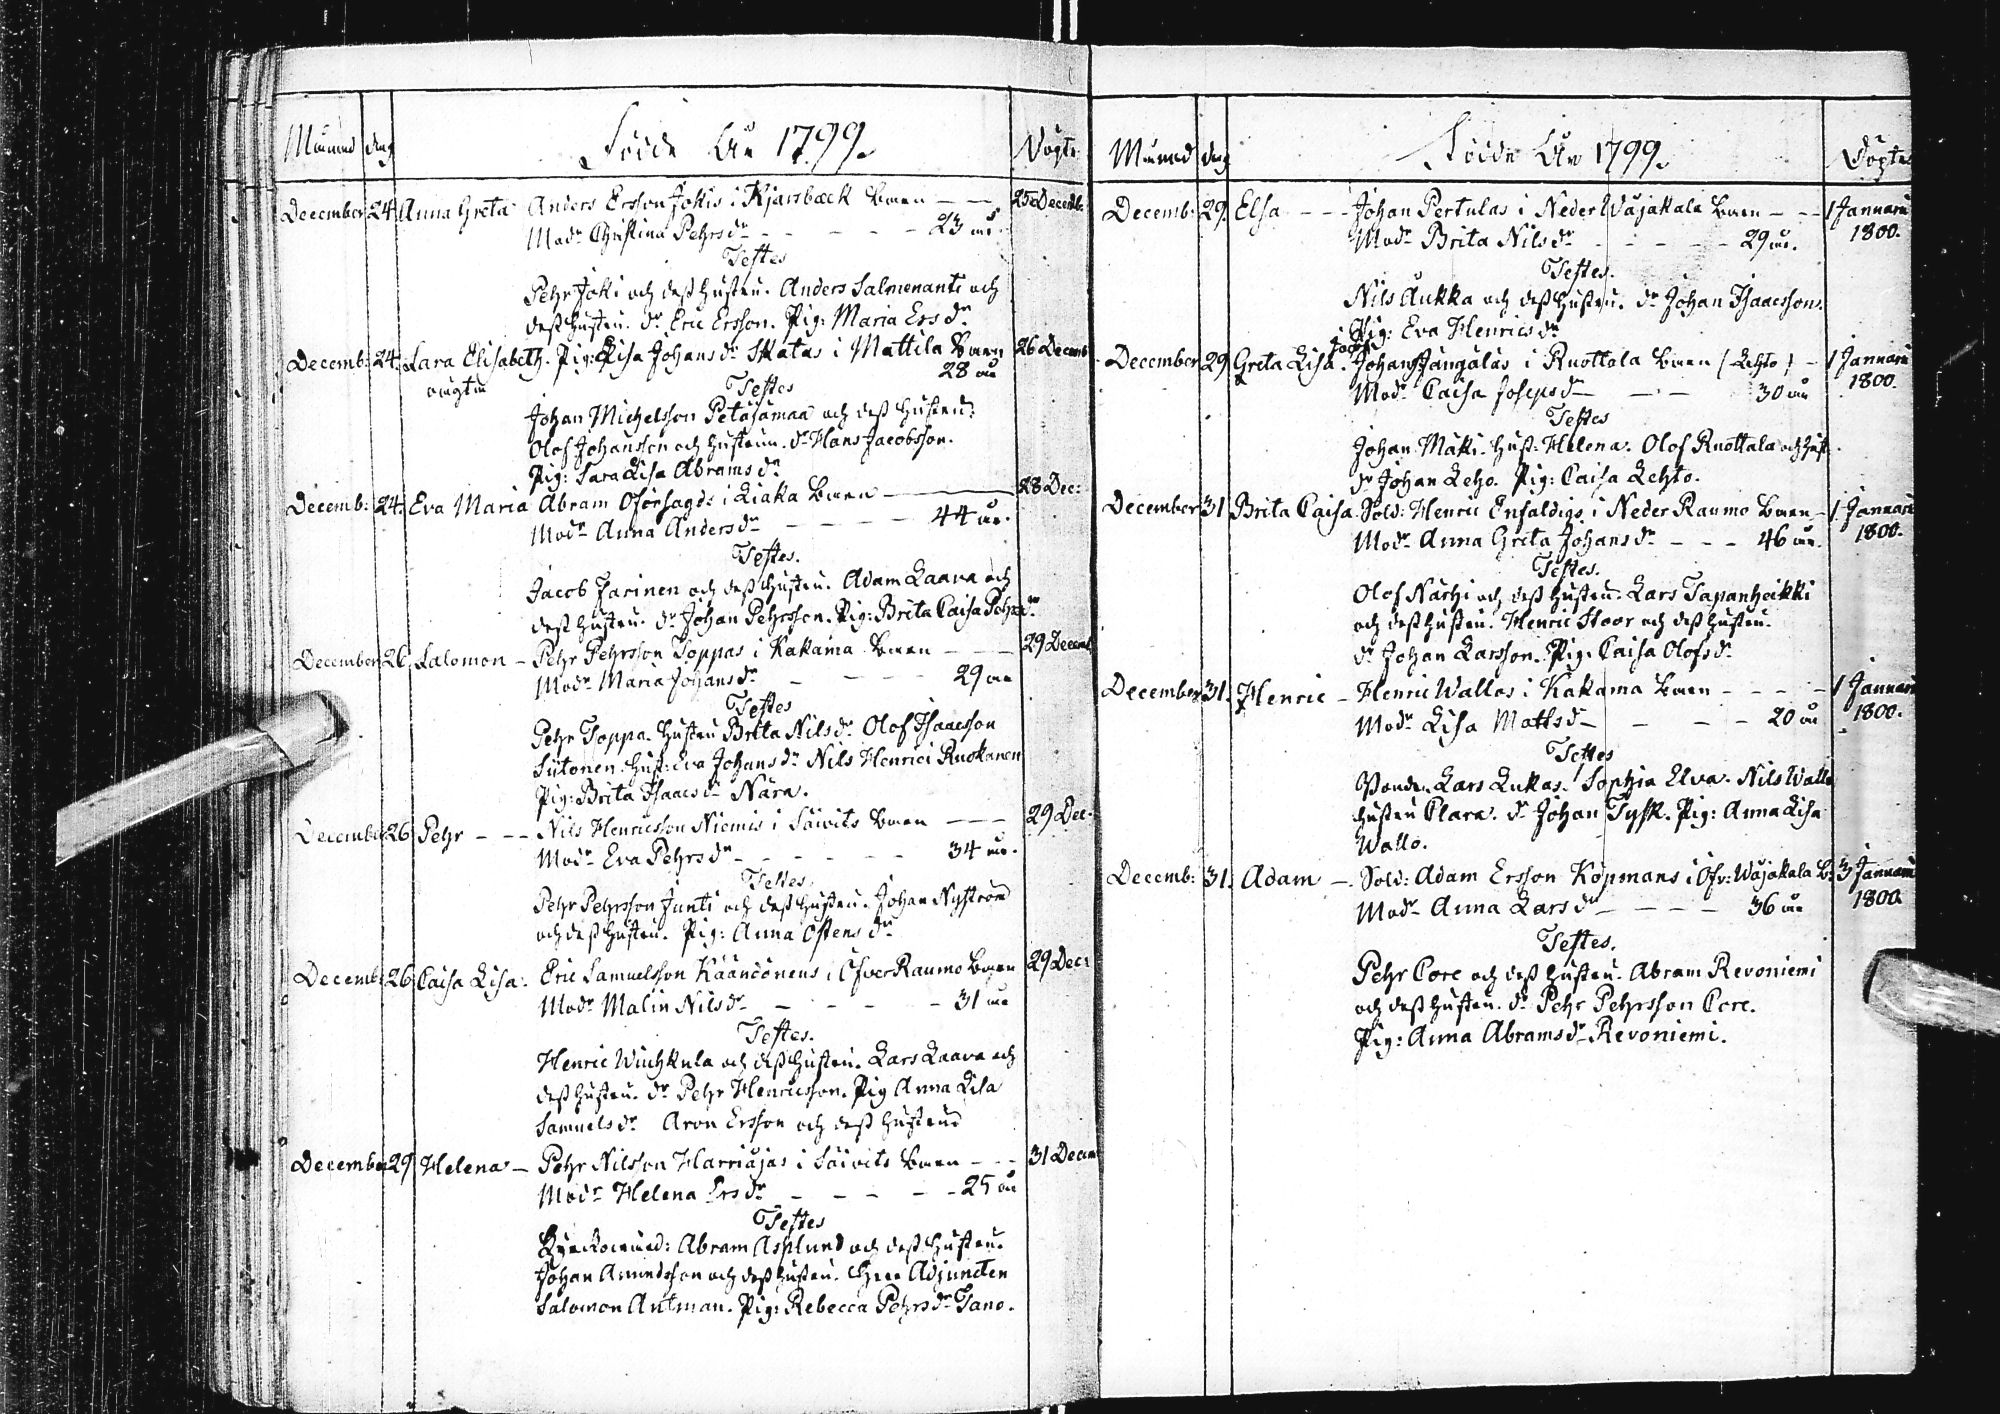 Månad dag Födde År 1799. Döpte
December 24. Anna Greta Anders Ersson Jokis i Kjärsbäck Barn 25 Decemb.
Modr Christina Pehrsdr 23 år.
Testes
Pehr Joki och dess hustru. Anders Salmenanti och
dess hustru. dr Eric Ersson. Pig: Maria Ersdr
Decemb: 24. Sara Elisabeth. Pig: Lisa Johansdr Skatas i Mattila Barn 26 Decemb
oägta 28 år
Testes
Johan Michelsson Petäjämaa och dess hustru.
Olof Johansson och hustrun. dr Hans Jacobsson.
Pig: Sara Lisa Abramsdr
Decemb: 24. Eva Maria Abram Oförsagds i Liaka Barn 28 Dec:
Modr Anna Andersdr 44 år.
Testes.
Jacob Jarinen och dess hustru. Adam Laava och
dess hustru. dr Johan Pehrsson. Pig: Brita Caisa Pehrsdr
December 26. Salomon Pehr Pehrsson Toppas i Kakama Barn 29 Decemb
Modr Maria Johansdr 29 år
Testes
Pehr Toppa. hustru Brita Nilsdr Olof Isaacsson
Siitonen. hust: Eva Johansdr Nils Henrici Ruokanen
Pig: Brita Isaacsdr Nära.
December 26. Pehr Nils Henricsson Niemis i Säivits Barn 29 Dec.
Modr Eva Pehrsdr 34 år.
Testes.
Pehr Pehrsson Junti och dess hustru. Johan Nyström
och dess hustru. Pig: Anna Östensdr
Decemb: 26. Caisa Lisa. Eric Samuelsson Käänöönens i Öfver Raumo Barn 29 Dec:
Modr Malin Nilsdr 31 år
Testes.
Henric Wuihkula och dess hustru. Lars Laava och
dess hustru. dr Pehr Henricsson. Pig Anna Lisa
Samuelsdr Aron Ersson och dess hustru
December 29. Helena Pehr Nilsson Harriajas i Säivits Barn 31 Decem
Modr Helena Ersdr 25 år
Testes
Kyrkovärd: Abram Asplund och dess hustru.
Johan Amundsson och dess hustru. Herr Adjuncten
Salomon Antman. Pig: Rebecca Pehrsdr Tano.
Månad dag Födde År 1799. Döpte
Decemb: 29. Elsa Johan Pertulas i Neder Wäjakala Barn 1 Januarii
Modr Brita Nilsdr 29 år. 1800.
Testes.
Nils Aukka och dess hustru. dr Johan Isaacsson.
Pig: Eva Henricsdr
December 29 Greta Lisa. Johan Jängäläs i Ruottala Barn (Lehto) 1 Januarii
Modr Caisa Josepsdr 30 år 1800.
Testes
Johan Mäki. Hust: Helena. Olof Ruottala och hust.
dr Johan Leho. Pig: Caisa Lehto.
December 31. Brita Caisa. Sold: Henric Enfaldigs i Neder Raumo Barn 1 Januarii
Modr Anna Greta Johansdr 46 år. 1800.
Testes.
Olof Närhi och dess hustru. Lars Tapanheikki
och dess hustru. Henric Stoor och dess hustru.
dr Johan Larsson. Pig: Caisa Olofsdr
December 31. Henric Henric Wallas i Kakama Barn 1 Januarii
Modr Lisa Mattsdr 20 år 1800.
Testes
Bonden Lars Lukas. Sophia Elva. Nils Wallo
hustru Clara. dr Johan Tysk. Pig: Anna Lisa
Wallo.
Decemb: 31. Adam Sold: Adam Ersson Köpmans i Öfv: Wäjakala B: 3 Januarii
Modr Anna Larsdr 36 år 1800.
Testes.
Pehr Core och dess hustru. Abram Revoniemi
och dess hustru. dr Pehr Pehrsson Core.
Pig: Anna Abramsdr Revoniemi.